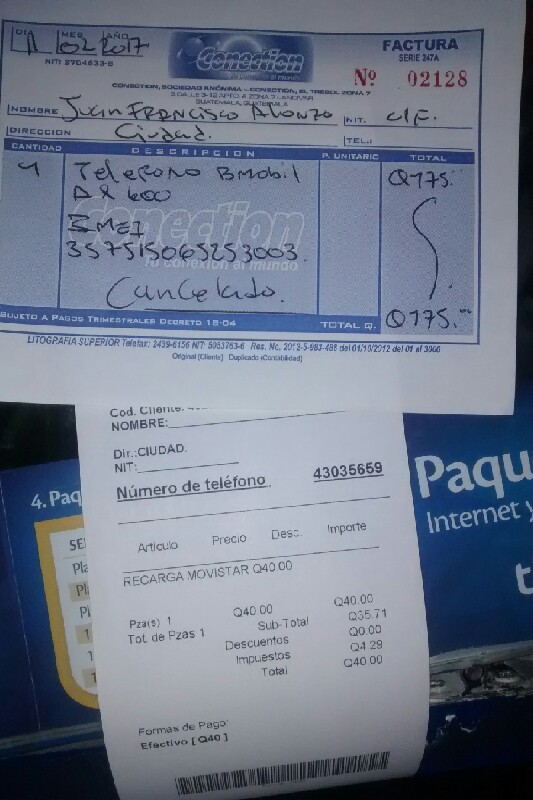 DIA MES AÑO
11/02/2017
Conection
FACTURA
SERIE 247A
Nº 02128
CONECTION, SOCIEDAD ANÓNIMA - CONECTION, EL TREBOL ZONA 7
GUATEMALA, GUATEMALA
NOMBRE Juan Francisco Alonzo NIT. C/F.
DIRECCION Ciudad. TEL.:
CANTIDAD DESCRIPCION P. UNITARIO TOTAL
1 Telefono Bmobil Q175.
AX 600
IMEI
357515065253003.
Conection
tu conexión al mundo
Cancelado.
SUJETO A PAGOS TRIMESTRALES DECRETO 18-04 TOTAL Q. Q175.
LITOGRAFIA SUPERIOR Telefax: 2439-6156 NIT: 5053763-6 Res. No. 2012-5-983-488 del 01/10/2012 del 01 al 3000
Original (Cliente) Duplicado (Contabilidad)
Cod. Cliente:
NOMBRE:
Dir.:CIUDAD.
NIT:
Número de teléfono 43035659
Articulo Precio Desc. Importe
RECARGA MOVISTAR Q40.00
Pza(s) 1 Q40.00 Q40.00
Tot. de Pzas 1 Sub-Total Q35.71
Descuentos Q0.00
Impuestos Q4.29
Total Q40.00
Formas de Pago:
Efectivo [ Q40 ]
4. Paq
Paqu
Internet y